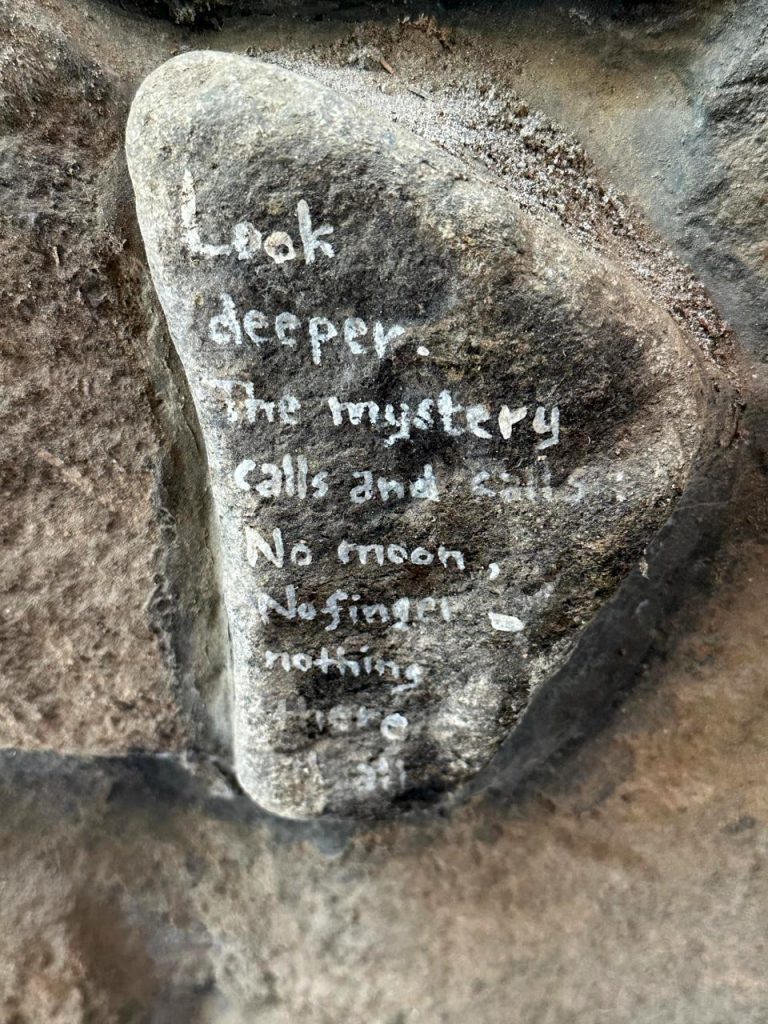 Look
deeper.
The mystery
calls and calls:
No moon,
No finger –
nothing
there
at all